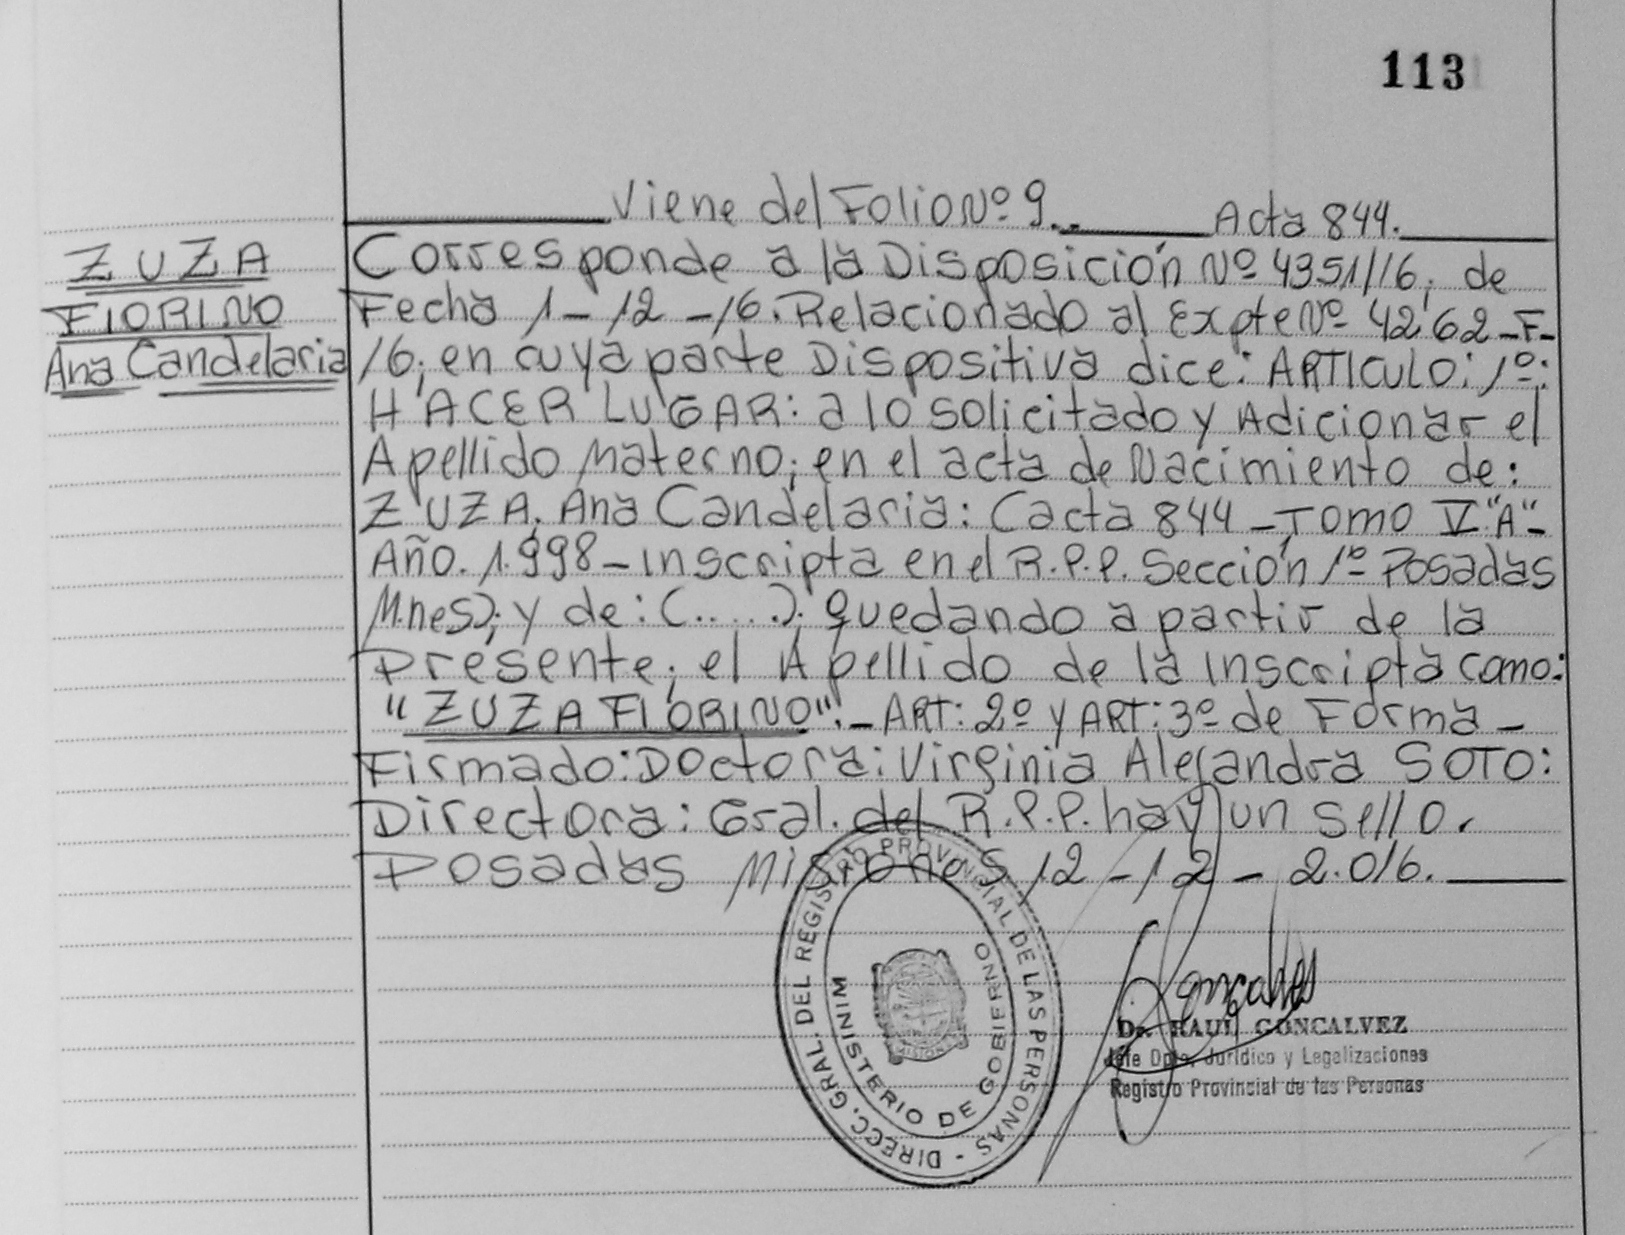 113
Viene del Folio Nº 9._ Acta 844._
ZUZA
FIORINO
Ana Candelaria
Corresponde a la Disposición Nº 4351/16; de
Fecha 1-12-16. Relacionado al Expte Nº 4262-F-
16; en cuya parte Dispositiva dice: ARTICULO: 1º:
HACER LUGAR: a lo solicitado y Adicionar el
Apellido Materno; en el acta de Nacimiento de:
ZUZA, Ana Candelaria: (acta 844 - Tomo V "A" -
Año. 1.998 - Inscripta en el R.P.P. Sección 1º Posadas
Mnes); y de: (.....); quedando a partir de la
Presente; el Apellido de la Inscripta como:
"ZUZA FIORINO". - ART: 2º y ART: 3º de Forma -
Firmado: Doctora: Virginia Alejandra SOTO:
Directora: Gral. del R.P.P. hay un sello.
Posadas Misiones 12-12-2.016.
DIRECC. GRAL. DEL REGISTRO PROVINCIAL DE LAS PERSONAS -
MINISTERIO DE GOBIERNO
MISIONES
Gonçalves
Dr. RAUL GONCALVEZ
Jefe Dpto. Jurídico y Legalizaciones
Registro Provincial de las Personas